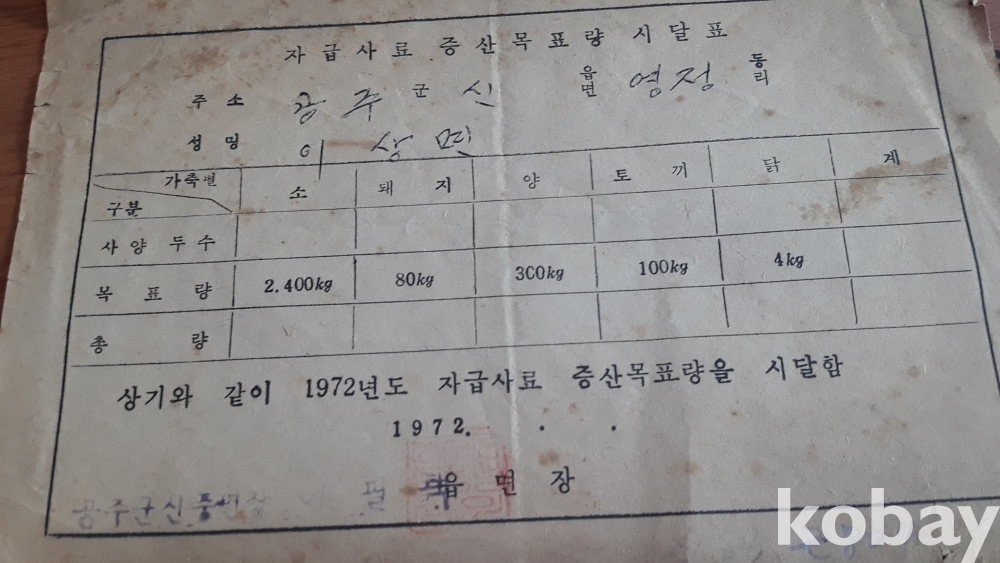 자급사료 증산목표량 시달표
주소 공주 군 신 읍면 영정 동리
성명 이상면
가축별 구분 소 돼지 양 토끼 닭 계
사양두수
목표량 2.400kg 80kg 300kg 100kg 4kg
총량
상기와 같이 1972년도 자급사료 증산목표량을 시달함
1972. . .
읍면장
공주군신풍면장
kobay